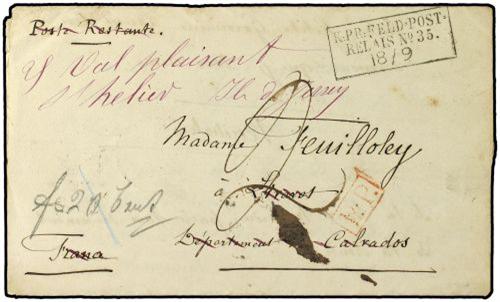 Poste Restante.
K.PR.FELD-POST-
RELAIS No 35.
18/9
Val plaisant
St helier Ile de Jersey
Madame Feuilloley
à
P.P.
Département Calvados
France